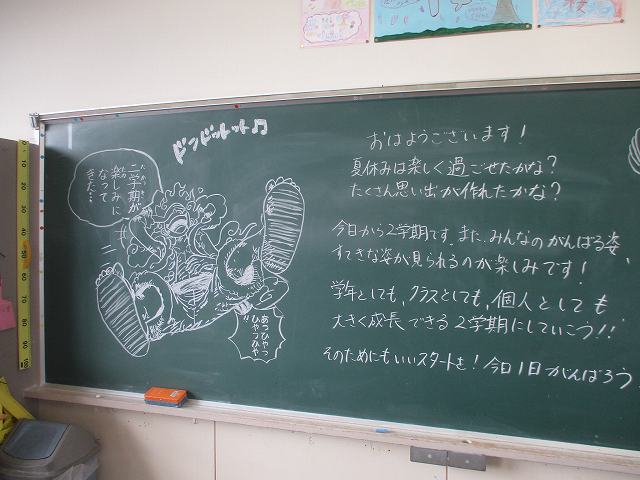 ドンドットット♫
二学期が
楽しみに
なって
きた…
あっひゃっ
ひゃっひゃ
!!
おはようございます！
夏休みは楽しく過ごせたかな？
たくさん思い出が作れたかな？
今日から2学期です。また、みんなのがんばる姿、
すてきな姿が見られるのが楽しみです！
学年としても、クラスとしても、個人としても
大きく成長できる2学期にしていこう！！
そのためにもいいスタートを！今日1日がんばろう